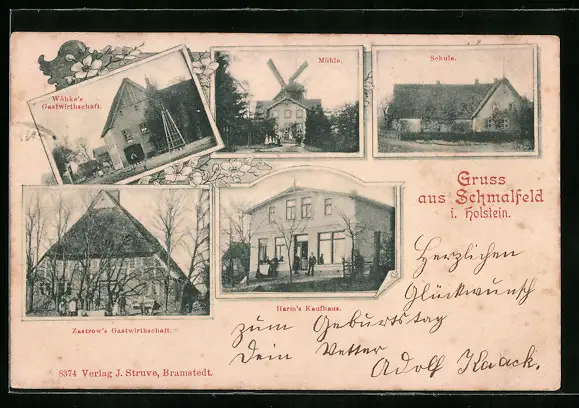 Wöhke's
Gastwirthschaft.
Mühle.
Schule.
Gruss
aus Schmalfeld
i. Holstein.
Zastrow's Gastwirthschaft.
Harm's Kaufhaus.
Herzlichen
Glückwunsch
zum Geburtstag
Dein Vetter
Adolf Kaack.
8374 Verlag J. Struve, Bramstedt.